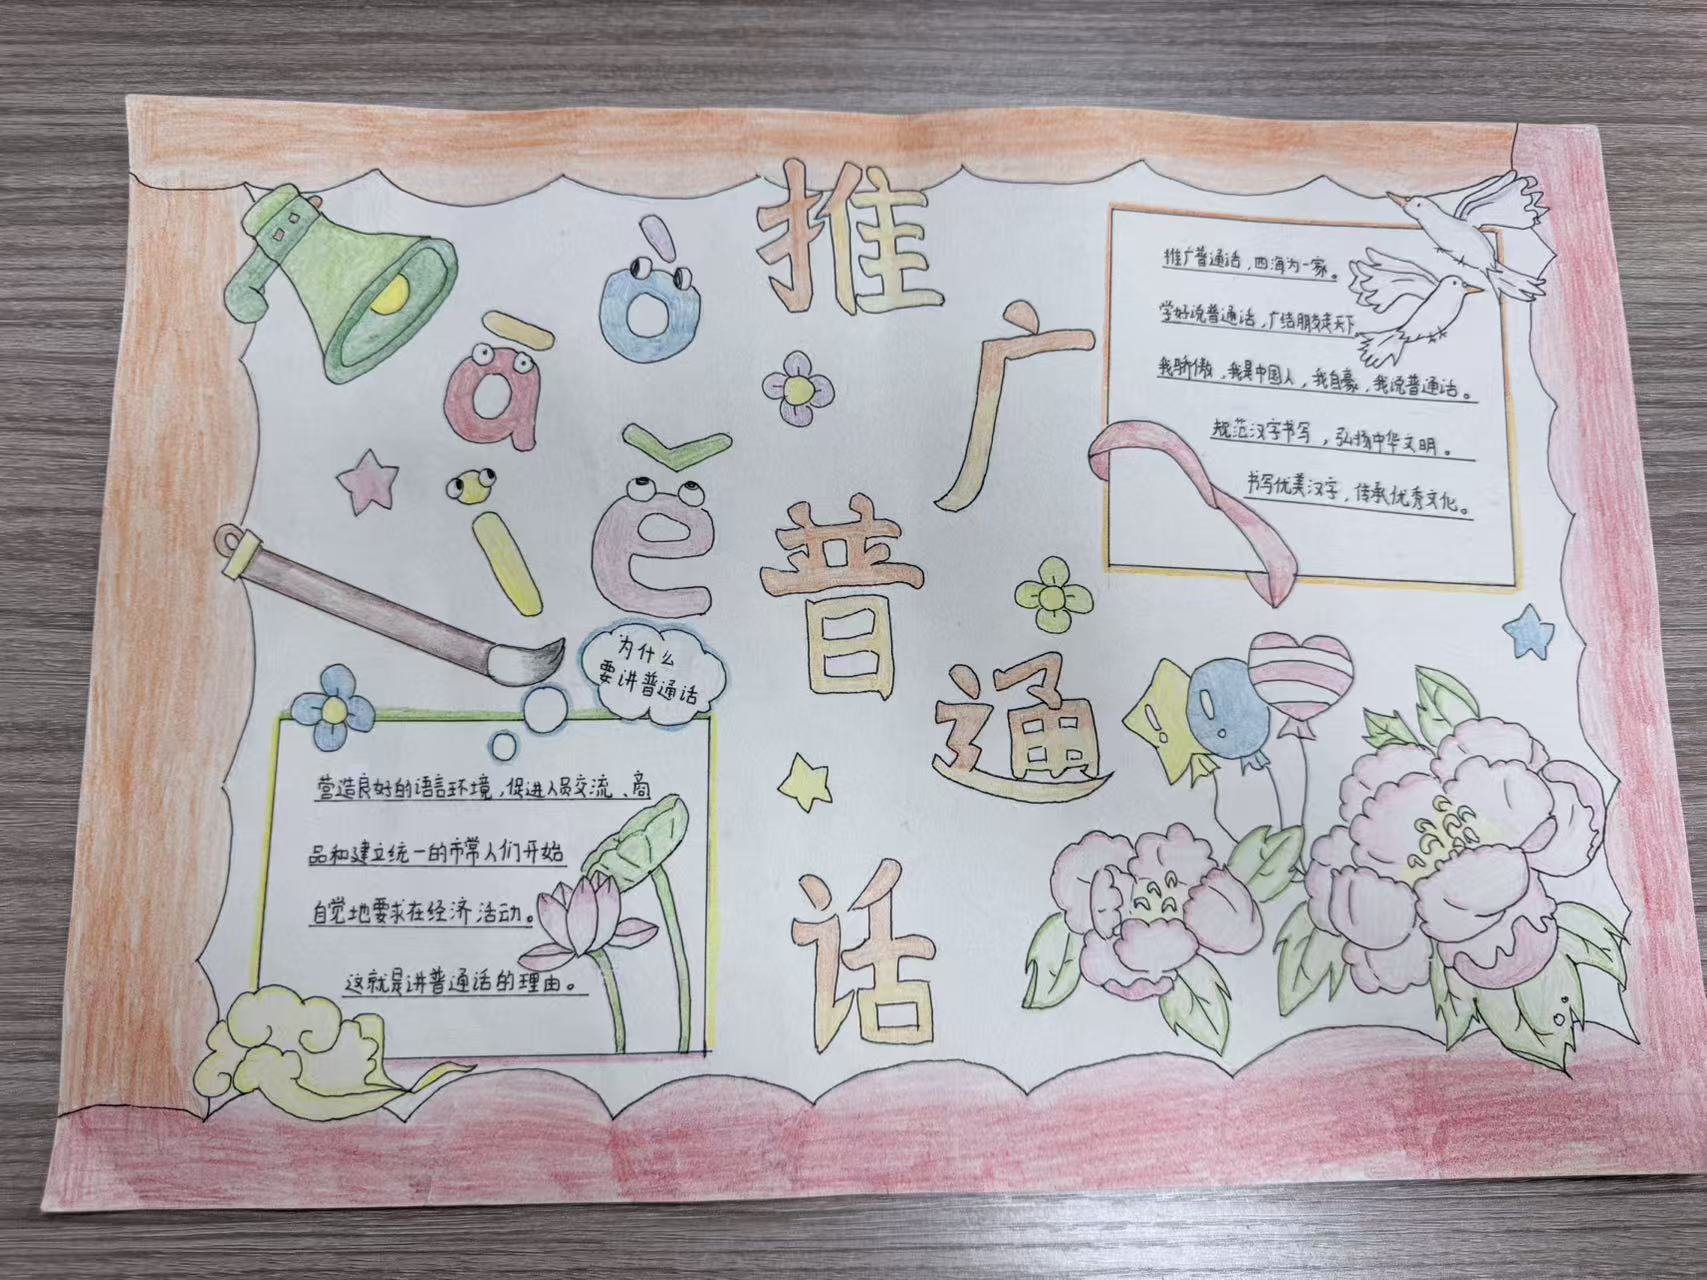 推广普通话
ò
à
ī
ě
推广普通话，四海为一家。
学好说普通话，广结朋友走天下
我骄傲，我是中国人，我自豪，我说普通话。
规范汉字书写，弘扬中华文明。
书写优美汉字，传承优秀文化。
为什么
要讲普通话
营造良好的语言环境，促进人员交流、商
品和建立统一的市常人们开始
自觉地要求在经济活动。
这就是讲普通话的理由。